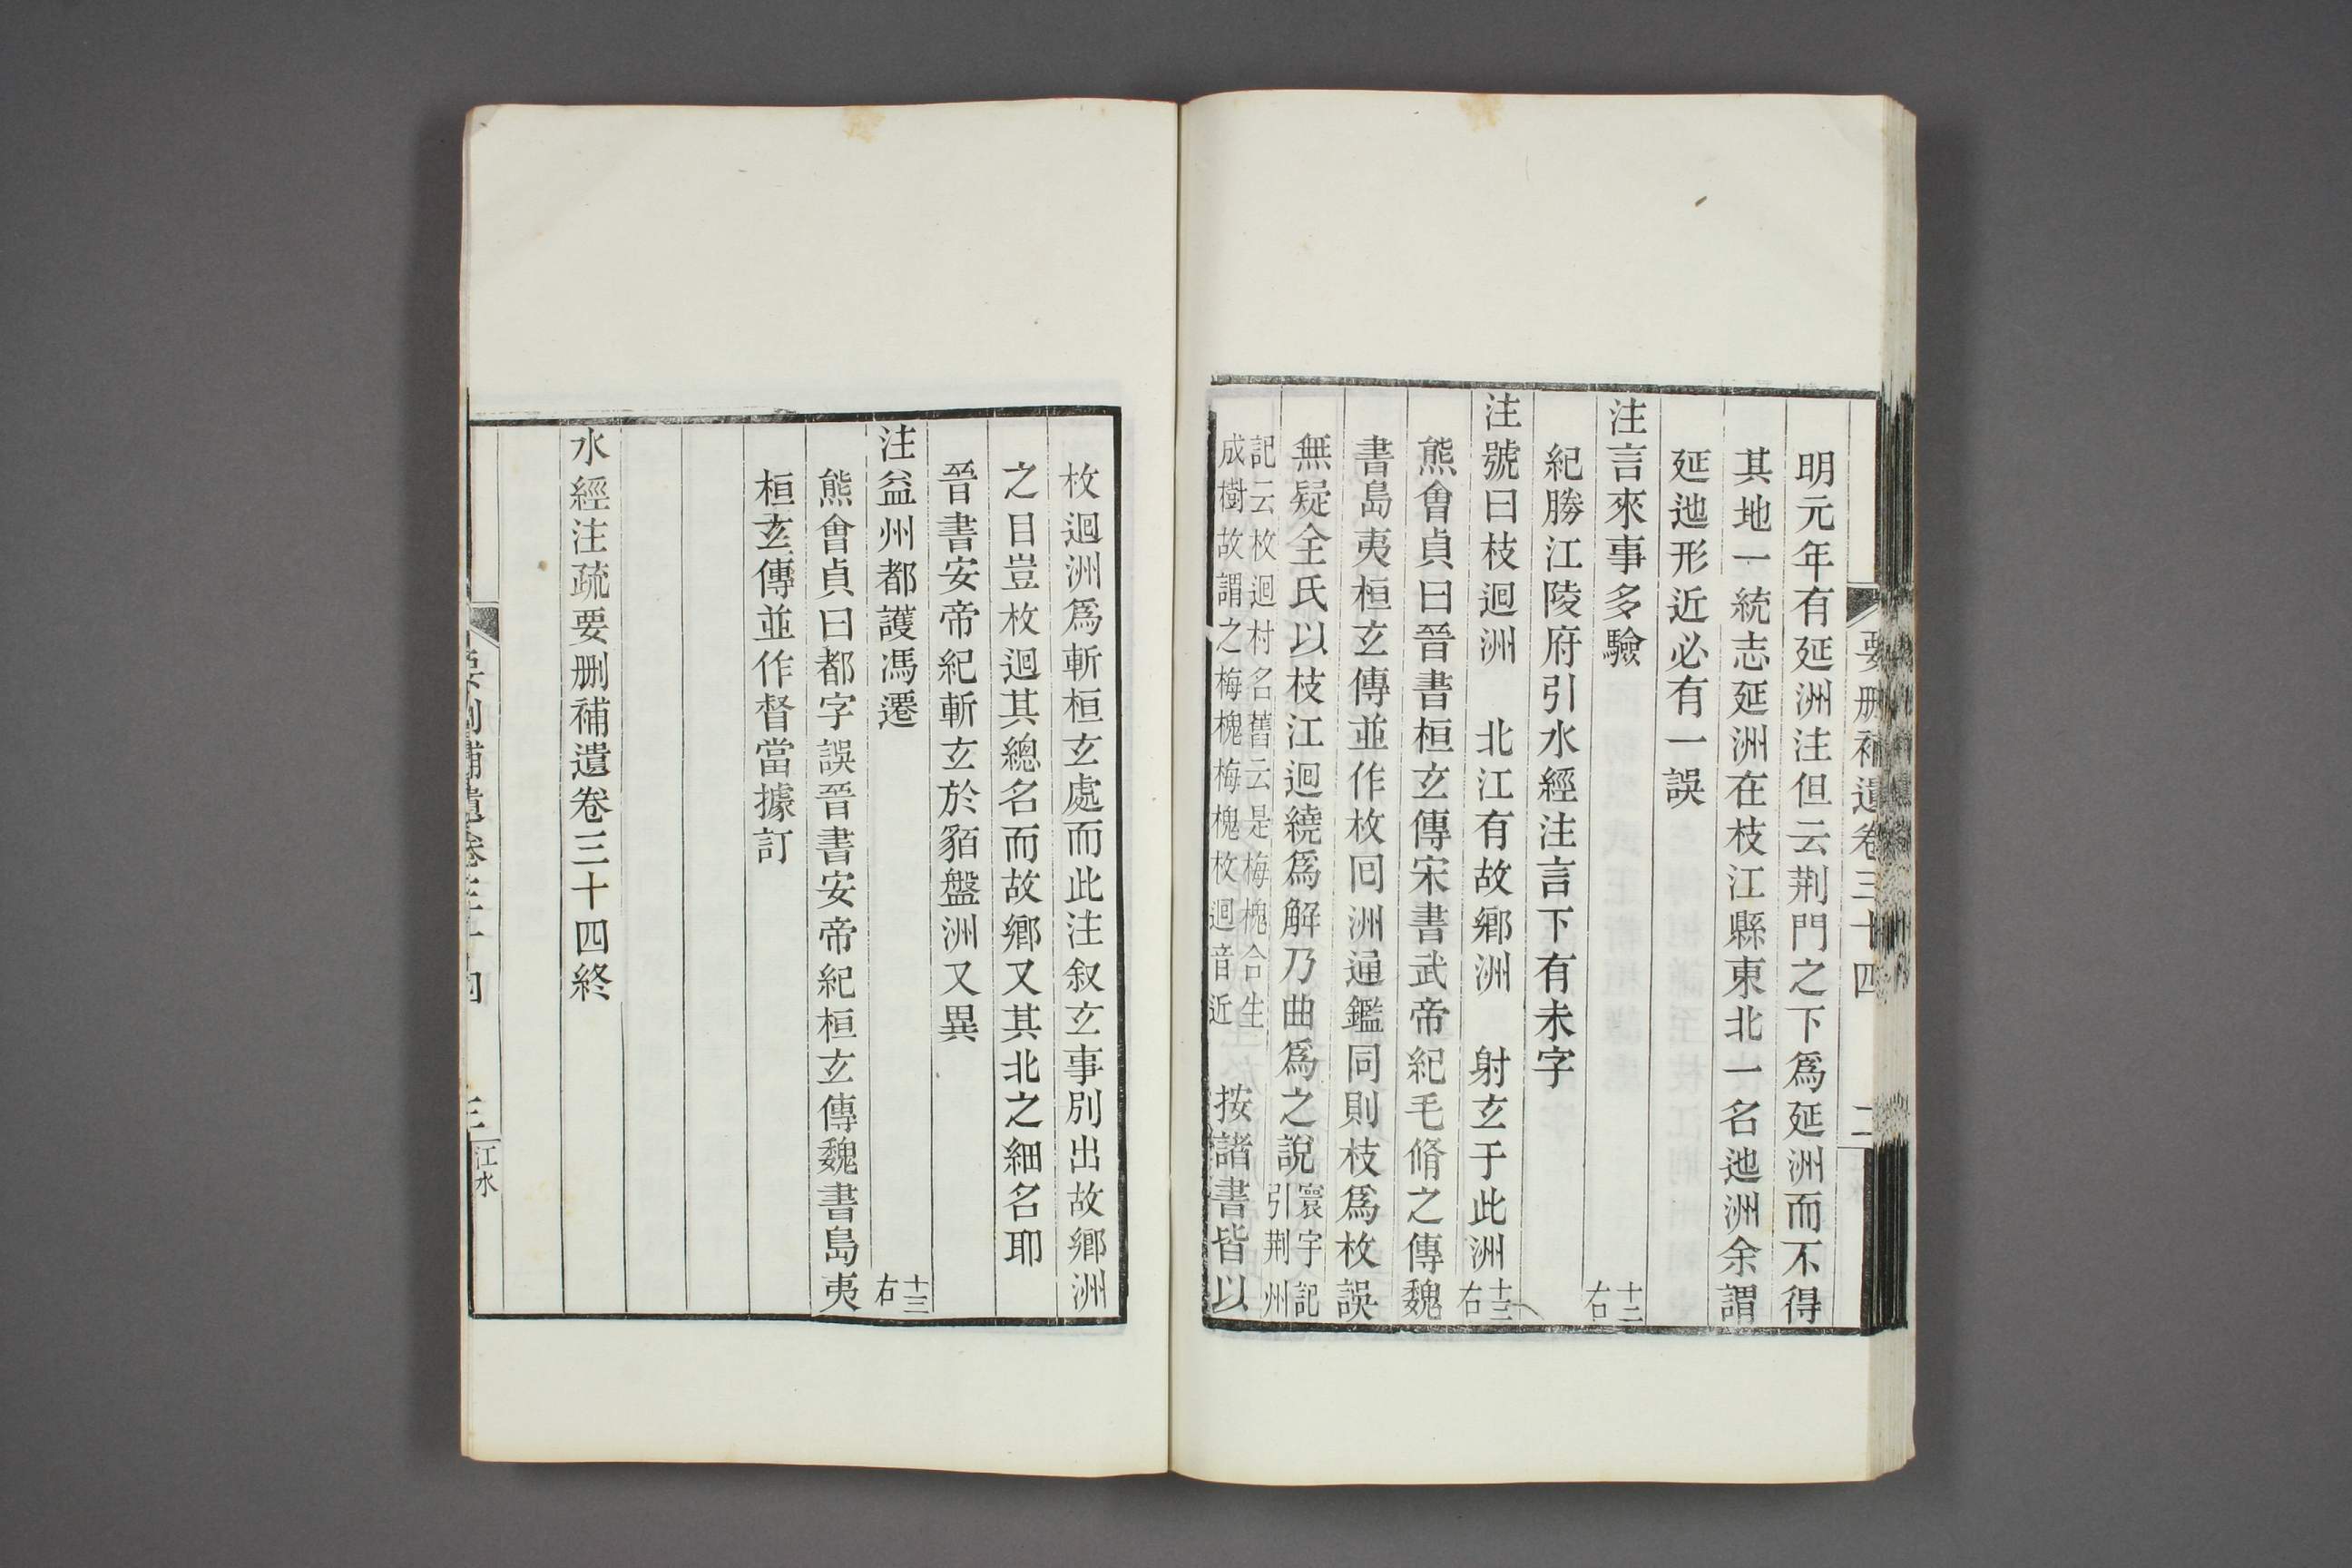 要刪補遺卷三十四 二
明元年有延洲注但云荆門之下爲延洲而不得
其地一統志延洲在枝江縣東北一名迆洲余謂
延迆形近必有一誤
注言來事多驗 十二右
紀勝江陵府引水經注言下有未字
注號曰枝迴洲 北江有故鄉洲 射玄于此洲 十三右
熊會貞曰晉書桓玄傳宋書武帝紀毛脩之傳魏
書島夷桓玄傳並作枚囘洲通鑑同則枝爲枚誤
無疑全氏以枝江迴繞爲解乃曲爲之說 寰宇記引荆州
記云枚迴村名舊云是梅槐合生成樹故謂之梅槐梅槐枚迴音近 按諸書皆以
枚迴洲爲斬桓玄處而此注叙玄事別出故鄉洲
之目豈枚迴其總名而故鄉又其北之細名耶
晉書安帝紀斬玄於貊盤洲又異
注益州都護馮遷 十三右
熊會貞曰都字誤晉書安帝紀桓玄傳魏書島夷
桓玄傳並作督當據訂
水經注疏要删補遺卷三十四終
要刪補遺卷三十四 三 江水